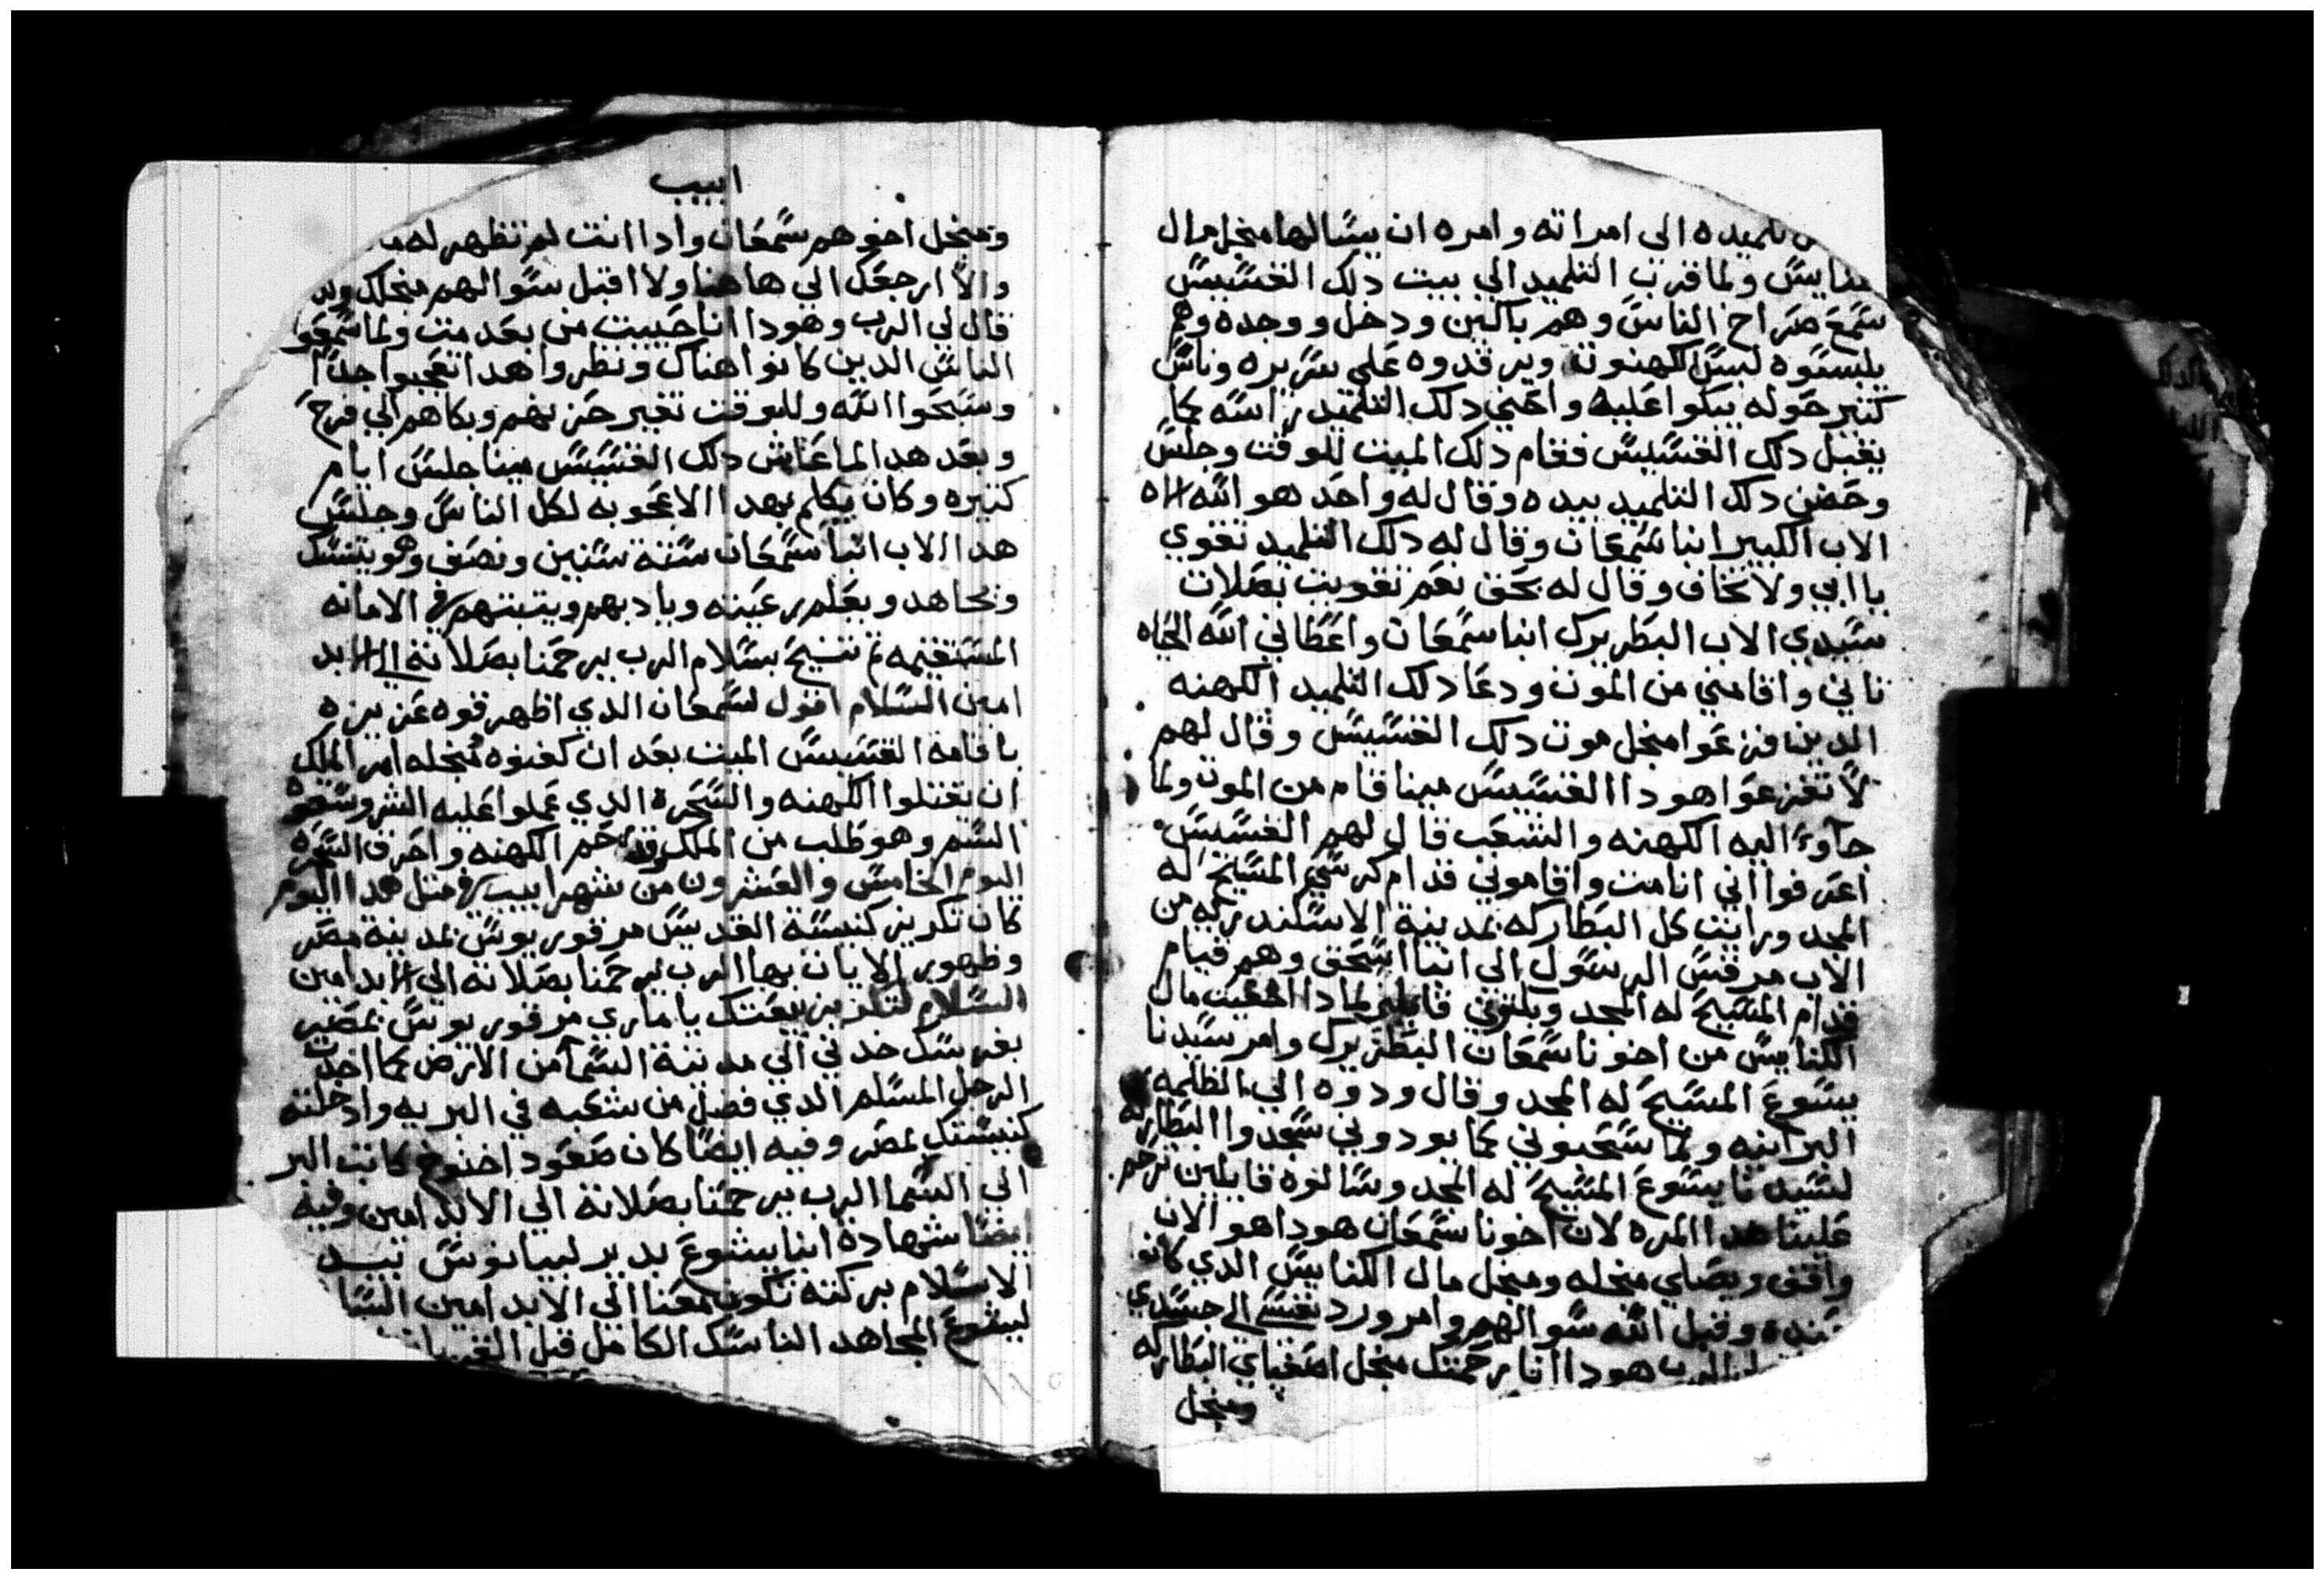 تلميده الي امراته وامره ان يسالها منجل مال
ولما قرب التلميد الي بيت دلك القسيس
سمع صراخ الناس وهم باكين ودخل ووجده وهم
يلبسوه لبس الكهنوت ويرقدوه علي سريره وناس
كتير حوله يبكوا عليه واحني دلك التلميد راسه لكما
يقبل دلك القسيس فقام دلك الميت للوقت وجلس
وحضن دلك التلميد بيده وقال له واحد هو الله الاه
الاب الكبير انبا سمعان وقال له دلك التلميد تقوي
يا ابي ولا تخاف وقال له بحق نعم تقويت بصلات
سيدي الاب البطريرك انبا سمعان واعطاني الله الحياه
تاني واقامني من الموت ودعا دلك التلميد الكهنه
الدين فزعوا منجل موت دلك القسيس وقال لهم
لا تفزعوا هودا القسيس مينا قام من الموت ولما
جاوء اليه الكهنه والشعب قال لهم القسيس
اعرفوا اني انا مت واقاموني قدام كرسي المسيح له
المجد ورايت كل البطاركه بمدينة الاسكندريه من
الاب مرقس الرسول الي انبا اسحق وهم قيام
قدام المسيح له المجد وبكتوني قايلين لمادا اخفيت مال
الكنايس من اخونا سمعان البطريرك وامر سيدنا
يسوع المسيح له المجد وقال ودوه الي الظلمه
البرانيه ولما سحبوني كما يودوني سجدوا البطاركه
لسيدنا يسوع المسيح له المجد وسالوه قايلين ترحم
علينا هدا المره لان اخونا سمعان هودا هو الان
واقف ويصلي منجله ومنجل مال الكنايس الدي كانو
عنده وقبل الله سوالهم وامر ورد نفسي الي جسدي
الرب هودا انا رحمتك منجل اصفياي البطاركه
ومنجل
ابيب
ومنجل اخوهم سمعان وادا انت لم تظهر له
والا ارجعك الي هاهنا ولا اقبل سوالهم منجلك
قال لي الرب وهودا انا حييت من بعد مت ولما سمعو
الناس الدين كانوا هناك ونظروا هدا تعجبوا جدا
وسبحوا الله وللوقت تغير حزنهم وبكاهم الي فرح
وبعد هدا لما عاش دلك القسيس مينا جلس ايام
كتيره وكان يكلم بهدا الاعجوبه لكل الناس وجلس
هدا الاب انبا سمعان ستة سنين ونصف وهو يتنسك
ويجاهد ويعلم رعيته ويادبهم ويتبتهم في الامانه
المستقيمه تم تنيح بسلام الرب يرحمنا بصلاته الي الابد
امين السلام اقول لسمعان الدي اظهر قوه عزيزه
باقامة القسيس الميت بعد ان كفنوه منجله امر الملك
ان يقتلوا الكهنه والسحرة الدي عملوا عليه الشر وسقوه
السم وهو طلب من الملك ورحم الكهنه واحرق السحره
اليوم الخامس والعشرون من شهر ابيب في متل هدا اليوم
كان تكريز كنيسة القديس مرقوريوس بمدينة مصر
وظهور الايات بها الرب يرحمنا بصلاته الي الابد امين
السلام لتكريز بيعتك يا ماري مرقوريوس بمصر
بفرسك خدني الي مدينة السما من الارض كما اخدت
الرجل المسلم الدي فصل من شعبه في البريه وادخلته
كنيستك بمصر وفيه ايضا كان صعود اخنوخ كاتب البر
الي السما الرب يرحمنا بصلاته الي الابد امين وفيه
ايضا شهادة انبا يشوع بدير لبيانوس بيد
الاسلام بركته تكون معنا الي الابد امين السلا
ليشوع المجاهد الناسك الكامل قبل